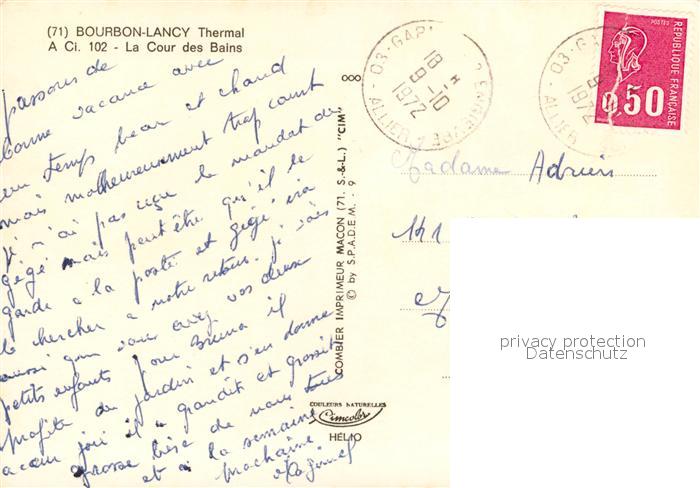 (71) BOURBON-LANCY Thermal
A Ci. 102 - La Cour des Bains
passons de
bonne vacance avec
un temps beau et chaud
mais malheureusement trop court
je n'ai pas reçu le mandat de
gégé mais peut être qu'il le
garde a la poste et gégé ira
le chercher a notre retour. je vois
aussi que vous avez vos deux
petits enfants pour Bruno il
profite du jardin et s'en donne
a coeur joie il grandit et grossit
grosse bise de nous tous
et a la semaine
prochaine
COMBIER IMPRIMEUR MACON (71. S.-&-L.) "CIM"
© by S.P.A.D.E.M. - 9
COULEURS NATURELLES
Cimcolor
HÉLIO
18 H
9-10
1972
ALLIER
03
REPUBLIQUE FRANÇAISE
POSTES
0,50
Madame Adrien
privacy protection
Datenschutz